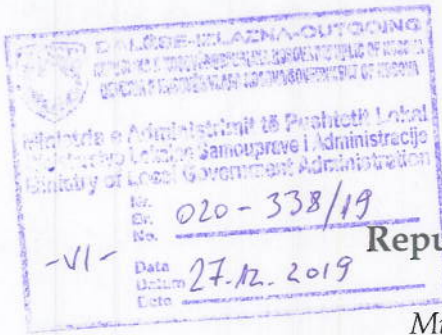 DALËSE-IZLAZNA-OUTGOING
Ministria e Administrimit të Pushtetit Lokal
Ministarstvo Lokalne Samouprave i Administracije
Ministry of Local Government Administration
Nr.
Br.
No. 020-338/19
-VI-
Data
Datum
Date 27.12.2019
Repu
Mi